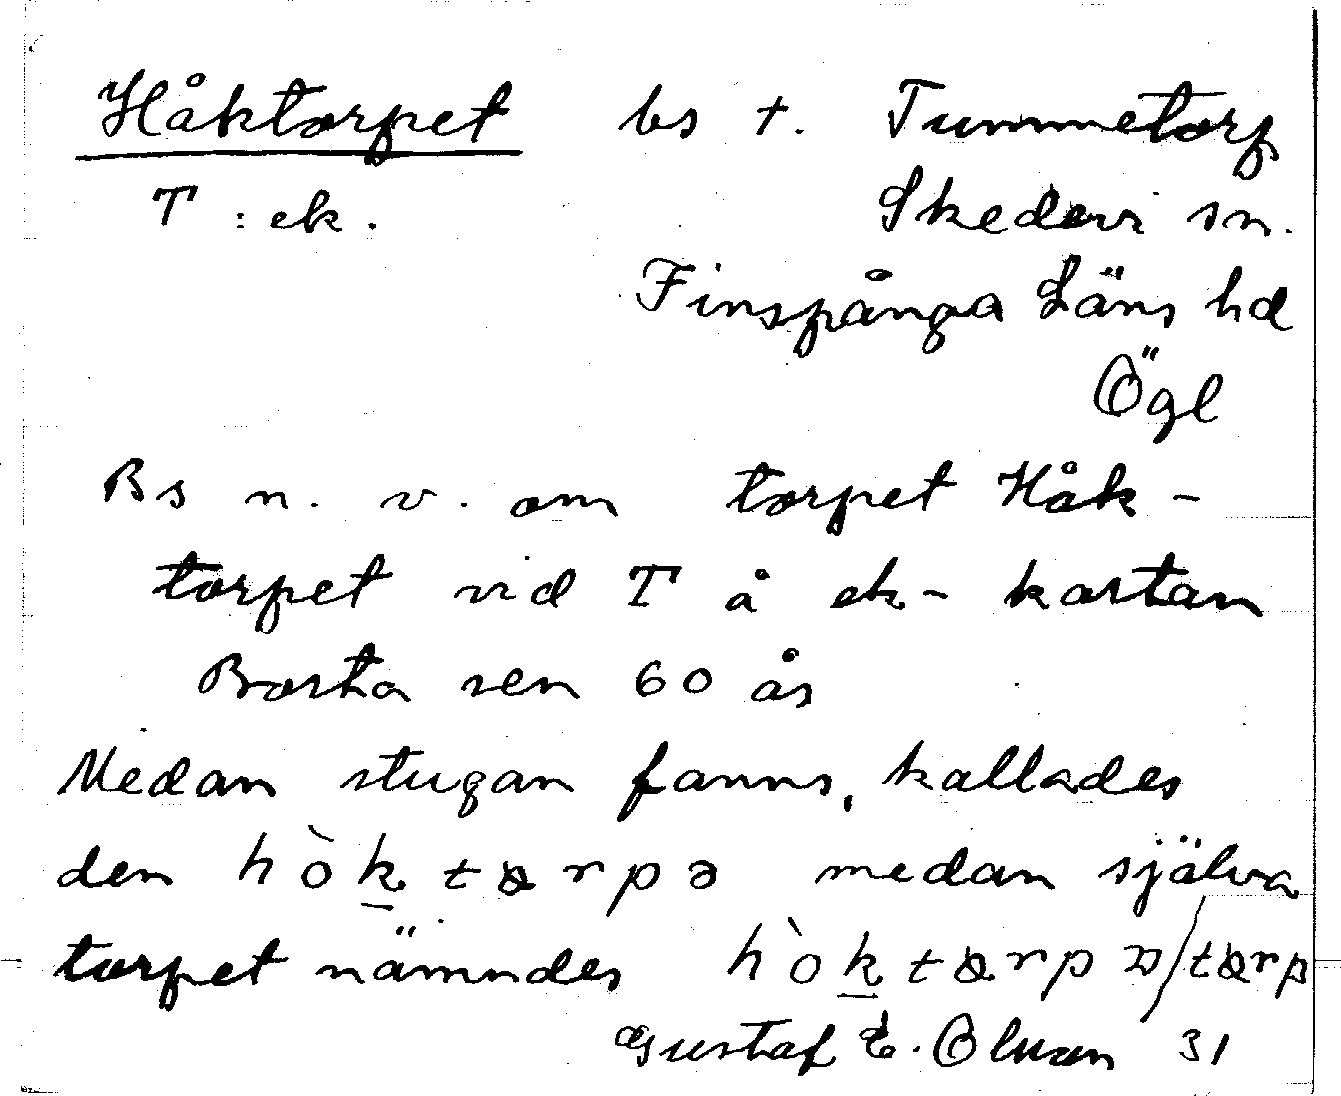 Håktorpet bs t. Tummetorp
T : ek. Skedevi sn.
Finspånga Läns hd
Ögl
Bs n. v. om torpet Håk-
torpet vid T å ek-kartan
Borta sen 60 år
Medan stugan fanns, kallades
den hòktɔrpə medan själva
torpet nämndes
Gustaf E. Olsson 31